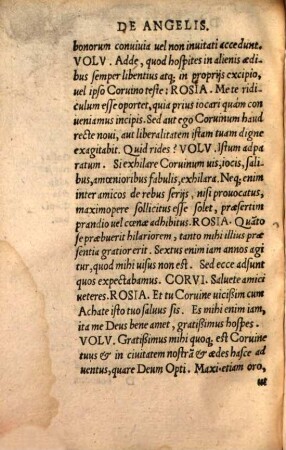 DE ANGELIS.
bonorum conuiuia uel non inuitati accedunt.
VOLV. Adde, quod hospites in alienis ædi
bus semper libentius atq; in proprijs excipio,
uel ipso Coruino teste: ROSIA. Me te ridi
culum esse oportet, quia prius iocari quàm con
ueniamus incipis. Sed aut ego Coruinum haud
recte noui, aut liberalitatem istam tuam digne
exagitabit. Quid rides? VOLV. Istum ad pa
ratum. Si exhilare Coruinum uis, iocis, sali
bus, amœnioribus fabulis, exhilara. Neq; enim
inter amicos de rebus serijs, nisi prouocatus,
maximopere sollicitus esse solet, præsertim
prandio uel cœnæ adhibitus. ROSIA. Quãto
se præbuerit hilariorem, tanto mihi illius præ
sentia gratior erit. Sextus enim iam annos agi
tur, quod mihi uisus non est. Sed ecce adsunt
quos expectabamus. CORVI. Saluete amici
ueteres. ROSIA. Et tu Coruine uicißim cum
Achate isto tuo saluus sis. Es mihi enim iam,
ita me Deus bene amet, gratißimus hospes.
VOLV. Gratißimus mihi quoq; est Coruine
tuus & in ciuitatem nostrã & ædes hasce ad
uentus, quare Deum Opti. Maxi. etiam oro,
ut